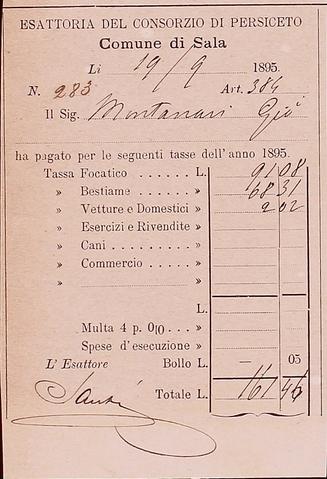 ESATTORIA DEL CONSORZIO DI PERSICETO
Comune di Sala
Li 19/9 1895.
N. 283 Art. 384
Il Sig. Montanari Gió
ha pagato per le seguenti tasse dell'anno 1895.
Tassa Focatico . . . . . L. 91 08
» Bestiame . . . . . » 68 31
» Vetture e Domestici » 2 02
» Esercizi e Rivendite »
» Cani . . . . . . . . »
» Commercio . . . . . »
» . . . . . . . . . . . »
L.
Multa 4 p. 0|0 . . . . »
Spese d'esecuzione »
L' Esattore Bollo L. — 05
Totale L. 161 46